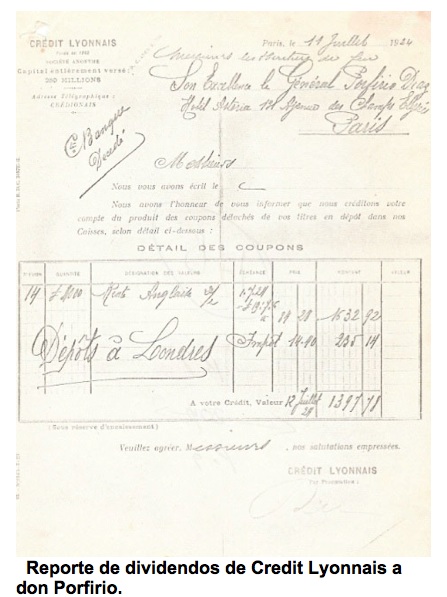 CRÉDIT LYONNAIS
SOCIÉTÉ ANONYME
Capital entièrement versé:
250 MILLIONS
Adresse Télégraphique:
CRÉDIONAIS
Paris, le 11 Juillet 1924
Son Excellence le Général Porfirio Diaz
Hôtel Astoria 131 Avenue des Champs Elysées
Paris
Banque
Messieurs
Nous vous avons écrit le
Nous avons l'honneur de vous informer que nous créditons votre
compte du produit des coupons détachés de vos titres en dépôt dans nos
Caisses, selon détail ci-dessous:
DÉTAIL DES COUPONS
QUANTITÉ DÉSIGNATION DES VALEURS ÉCHÉANCE PRIX MONTANT VALEUR
14 1632 92
Dépôts à Londres Impôt 235 14
A votre Crédit, Valeur 12 Juillet 24 1397 78
(Sous réserve d'encaissement)
Veuillez agréer, Messieurs, nos salutations empressées.
CRÉDIT LYONNAIS
Reporte de dividendos de Credit Lyonnais a
don Porfirio.